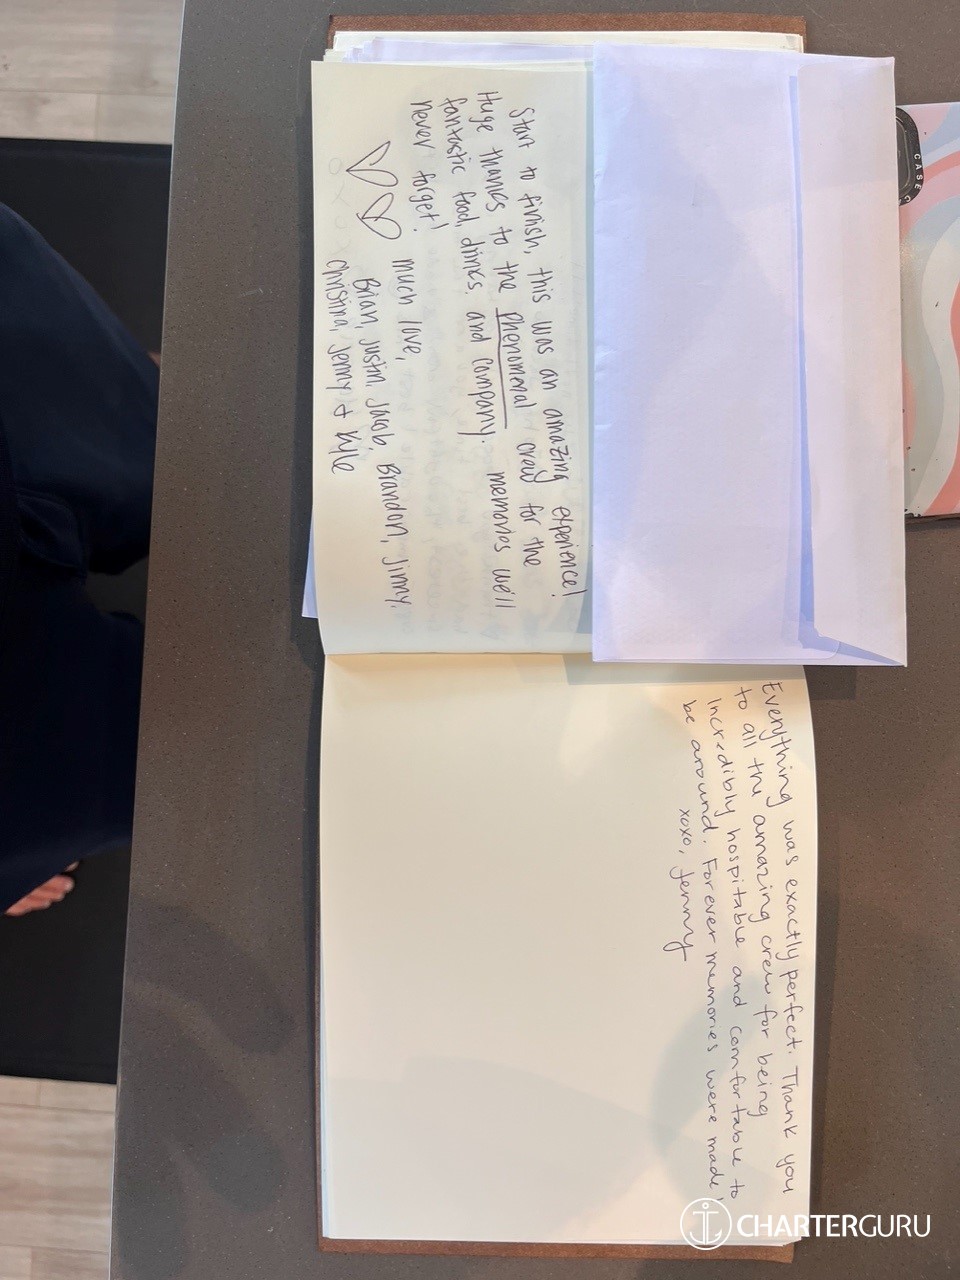 Start to finish, this was an amazing experience!
Huge thanks to the phenomenal crew for the
fantastic food, drinks, and company. memories we'll
never forget!
much love,
Brian, Justin, Jacob, Brandon, Jinny,
Christina, Jenny + Kyle
Everything was exactly perfect. Thank you
to all the amazing crew for being
incredibly hospitable and comfortable to
be around. Forever memories were made!
xoxo, Jenny
CASE
CHARTERGURU